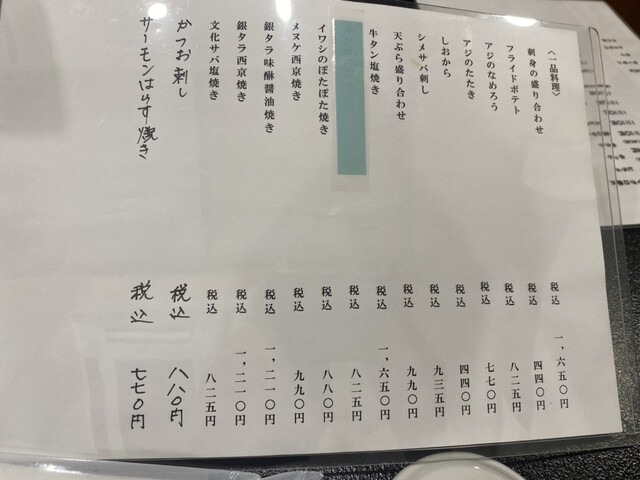 〈一品料理〉
刺身の盛り合わせ 税込 一、六五〇円
フライドポテト 税込 四四〇円
アジのなめろう 税込 八二五円
アジのたたき 税込 七七〇円
しおから 税込 四四〇円
シメサバ刺し 税込 九三五円
天ぷら盛り合わせ 税込 九九〇円
牛タン塩焼き 税込 一、六五〇円
税込 八二五円
イワシのぽたぽた焼き 税込 八八〇円
メヌケ西京焼き 税込 九九〇円
銀タラ味醂醤油焼き 税込 一、二一〇円
銀タラ西京焼き 税込 一、二一〇円
文化サバ塩焼き 税込 八二五円
かつお刺し 税込 八八〇円
サーモンはらす焼き 税込 七七〇円